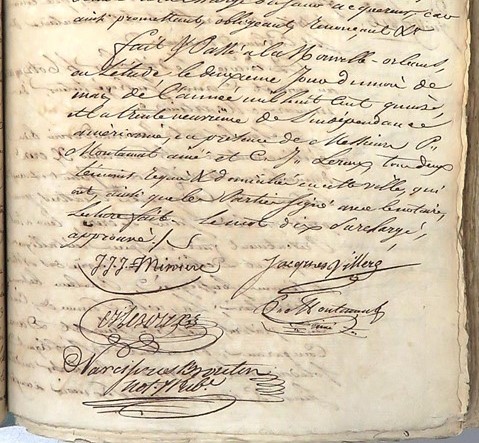 ainsi promettant, obligeant, Renonçant &c
fait & Passé à la Nouvelle-orleans,
en l'étude, le deuxième Jour du mois de
mai de l'année mil huit cent quinze
et la trente neuvième de l'indépendance
américaine, en présence de Messieurs P.re
Montamat ainé et Leroux, tous deux
témoins requis & domiciliés en cette ville, qui
ont ainsi que les Parties signé avec le notaire,
Lecture faite. Le mot dix Surchargé,
approuvé ./.
J. J. J. Miniere
Jacques Villeré
Montamat
ainé
Narcissus Broutin
Not. Pub.